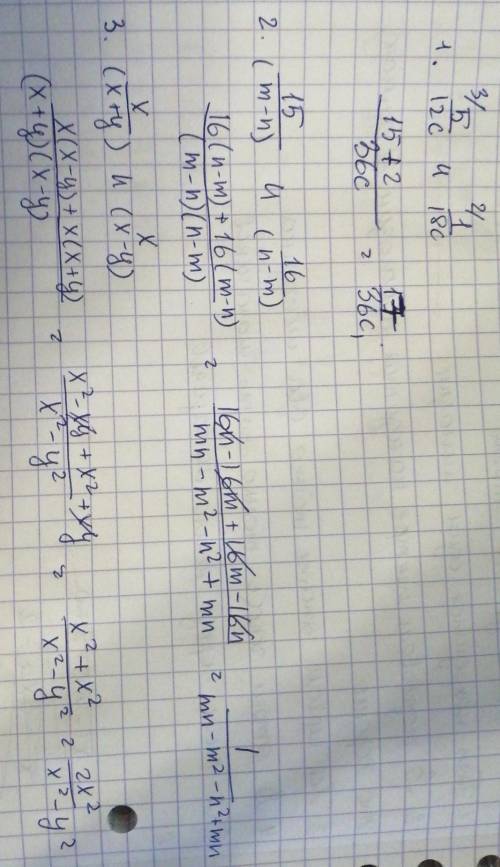 1. ^{3/}\frac{5}{12c} и ^{2/}\frac{1}{18c}
\frac{15+2}{36c} = \frac{17}{36c};
2. \frac{15}{(m-n)} и \frac{16}{(n-m)}
\frac{16(n-m)+16(m-n)}{(m-n)(n-m)} = \frac{16n-16m+16m-16n}{mn-m²-n²+mn} = \frac{1}{mn-m²-n²+mn}
3. \frac{x}{(x+y)} и \frac{x}{(x-y)}
\frac{x(x-y)+x(x+y)}{(x+y)(x-y)} = \frac{x²-xy+x²+xy}{x²-y²} = \frac{x²+x²}{x²-y²} = \frac{2x²}{x²-y²}